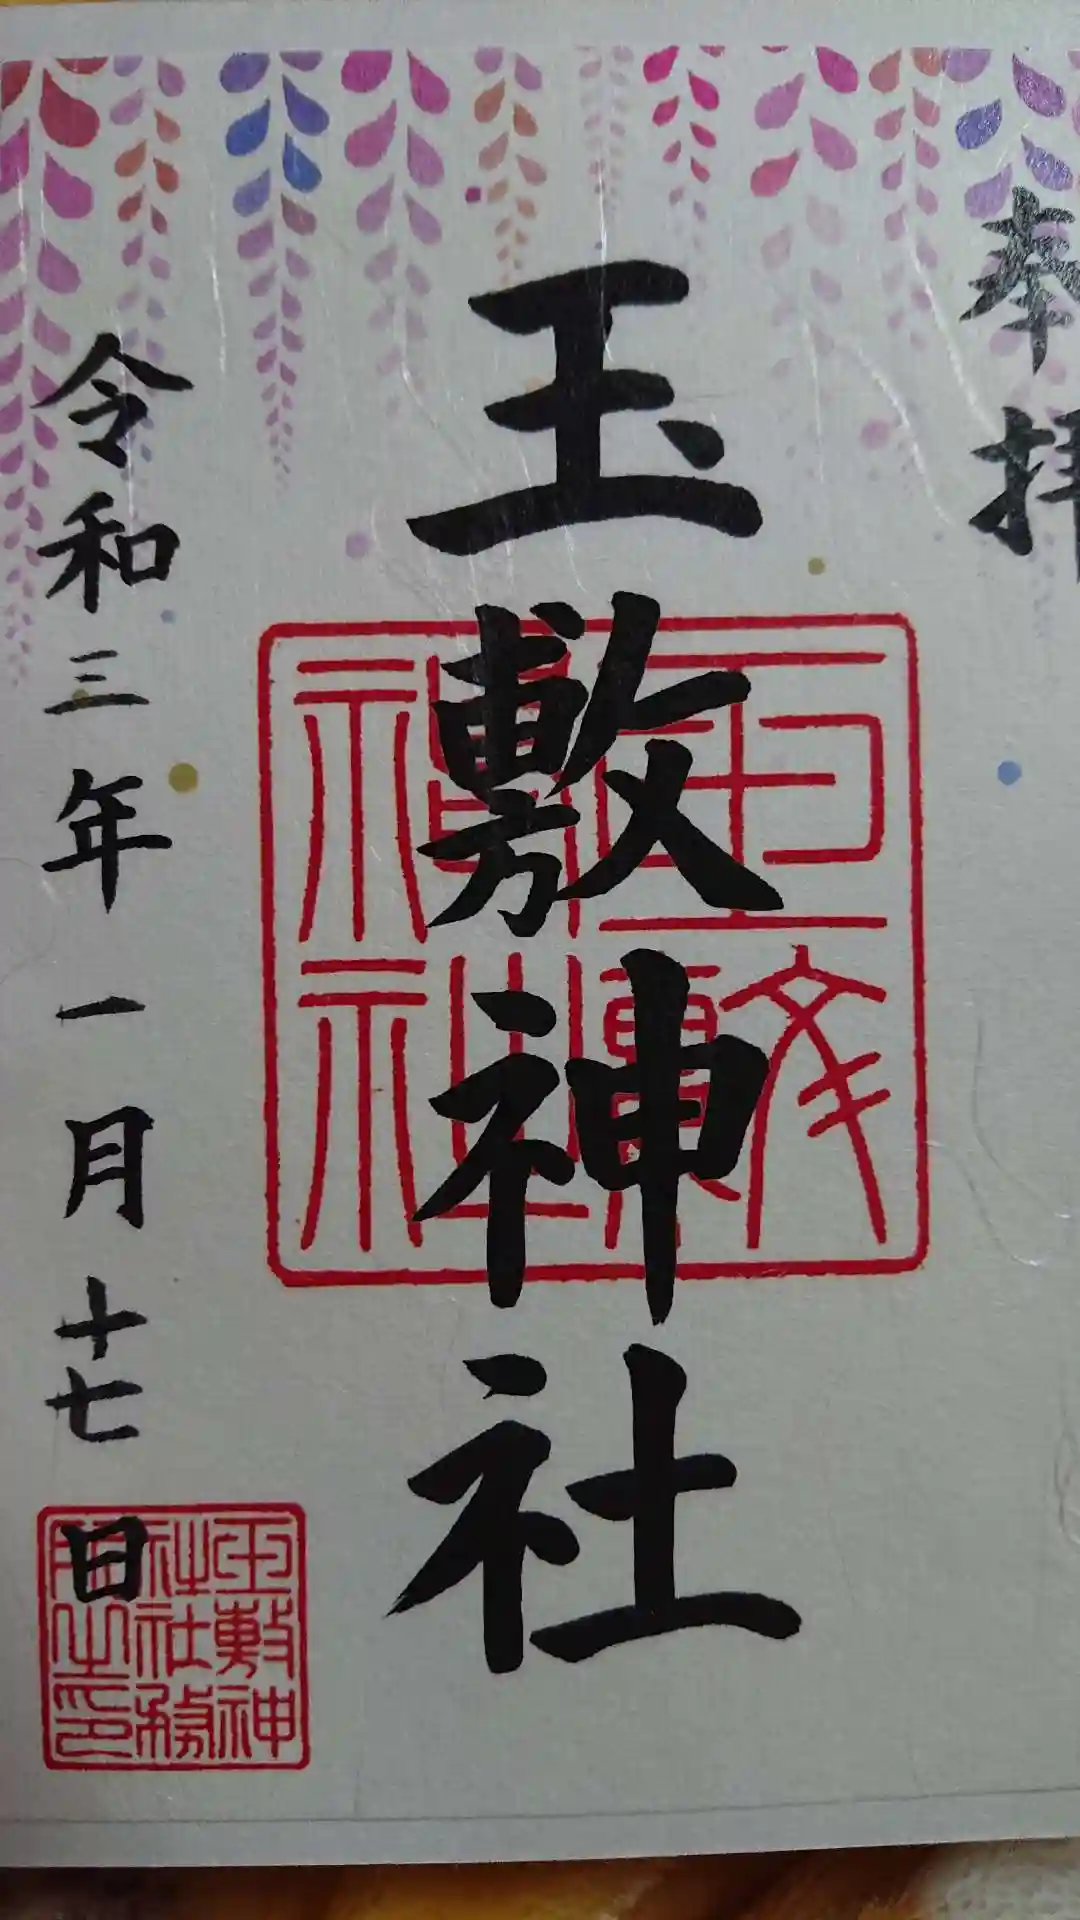 奉拝
玉敷神社
玉敷
神社
令和三年一月十七日
玉敷神
社社務
所之印